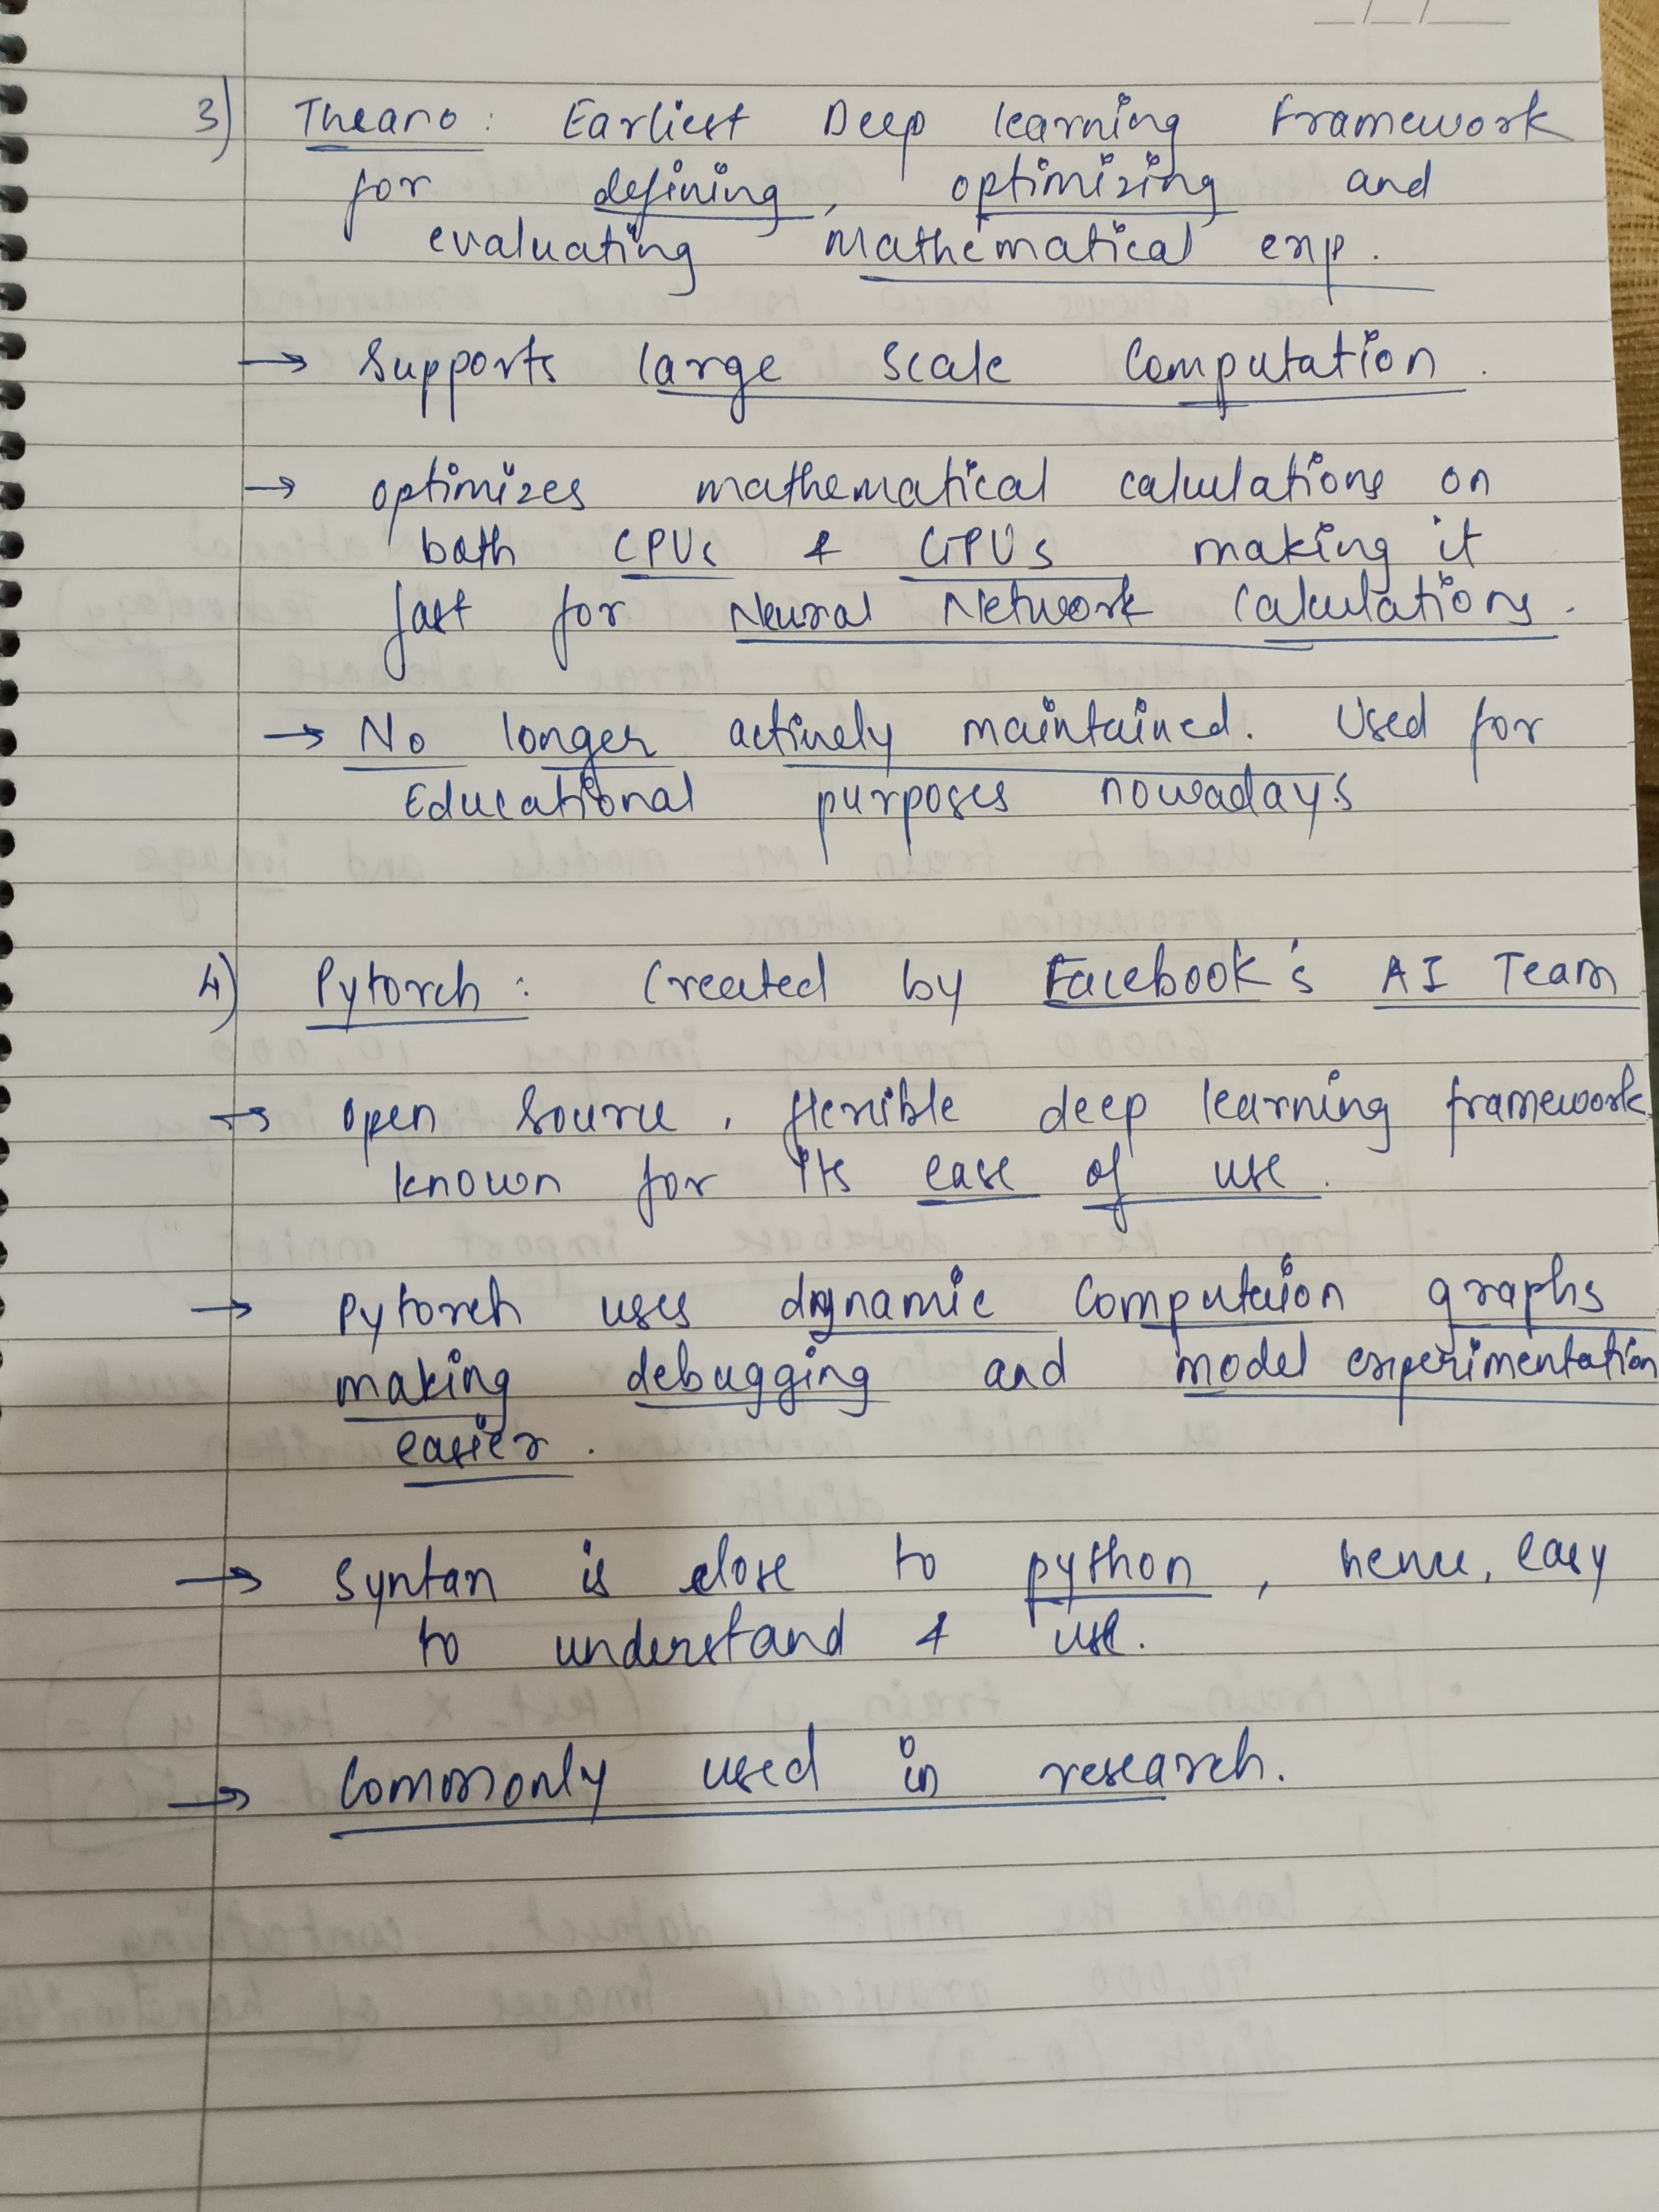 __/__/____
3) Theano : Earliest Deep learning Framework
for defining, optimizing and
evaluating mathematical exp.
→ Supports large scale Computation.
→ optimizes mathematical calculations on
both CPUs & GPUs making it
fast for Neural Network Calculations.
→ No longer actively maintained. Used for
Educational purposes nowadays
4) Pytorch : Created by Facebook's AI Team
→ open source, flexible deep learning framework
known for its ease of use.
→ Pytorch uses dynamic Computaion graphs
making debugging and model experimentation
easier.
→ Syntax is close to python, hence, easy
to understand & use.
→ Commonly used in research.